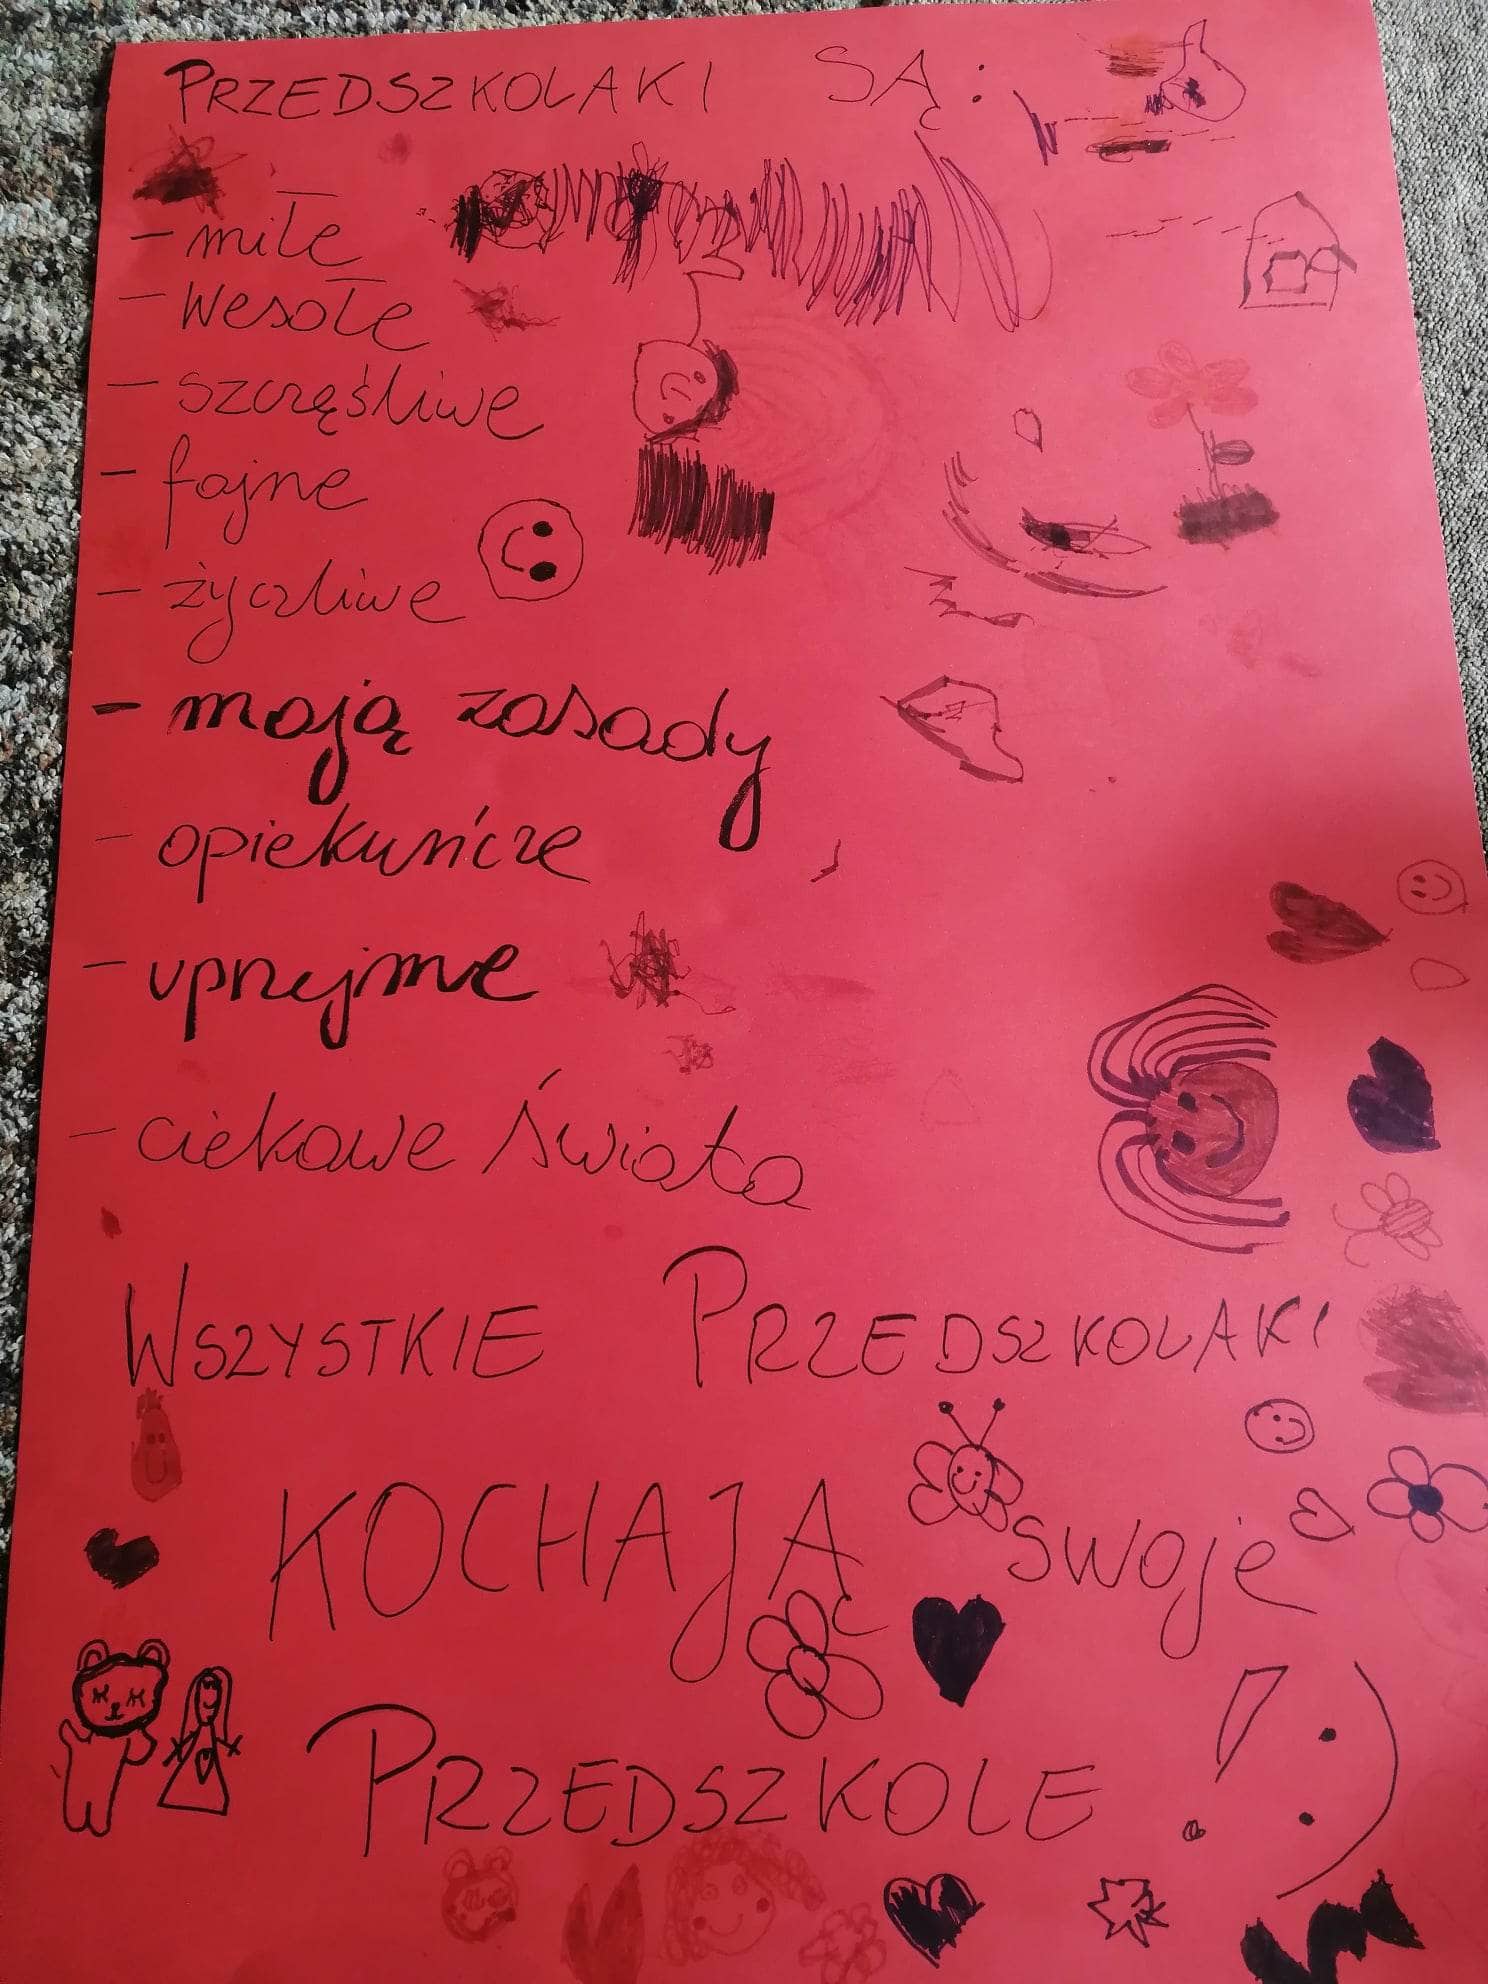 PRZEDSZKOLAKI SĄ:
- miłe
- wesołe
- szczęśliwe
- fajne
- życzliwe
- mają zasady
- opiekuńcze
- uprzejme
- ciekawe świata
WSZYSTKIE PRZEDSZKOLAKI
KOCHAJĄ swoje
PRZEDSZKOLE! :)